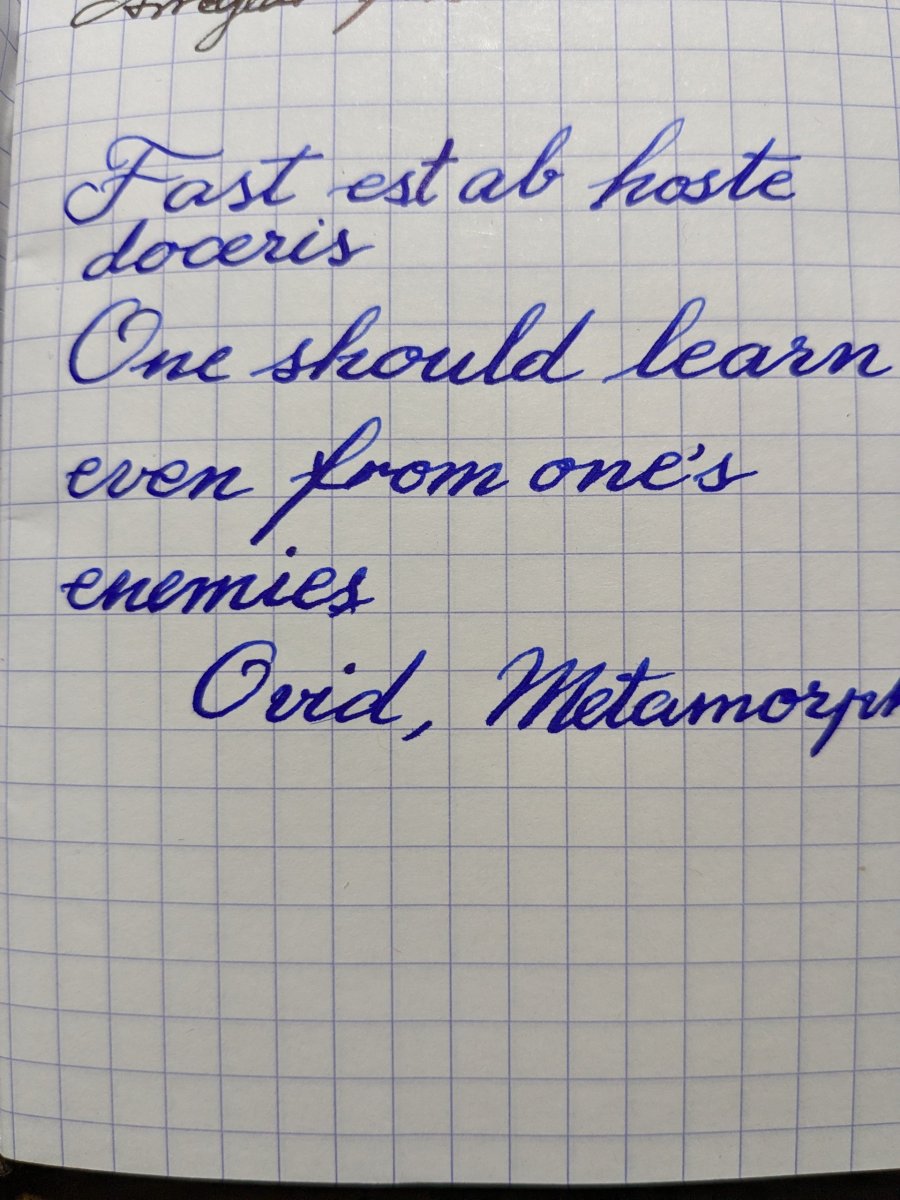 Fast est ab hoste
doceris
One should learn
even from one's
enemies
Ovid, Metamorph